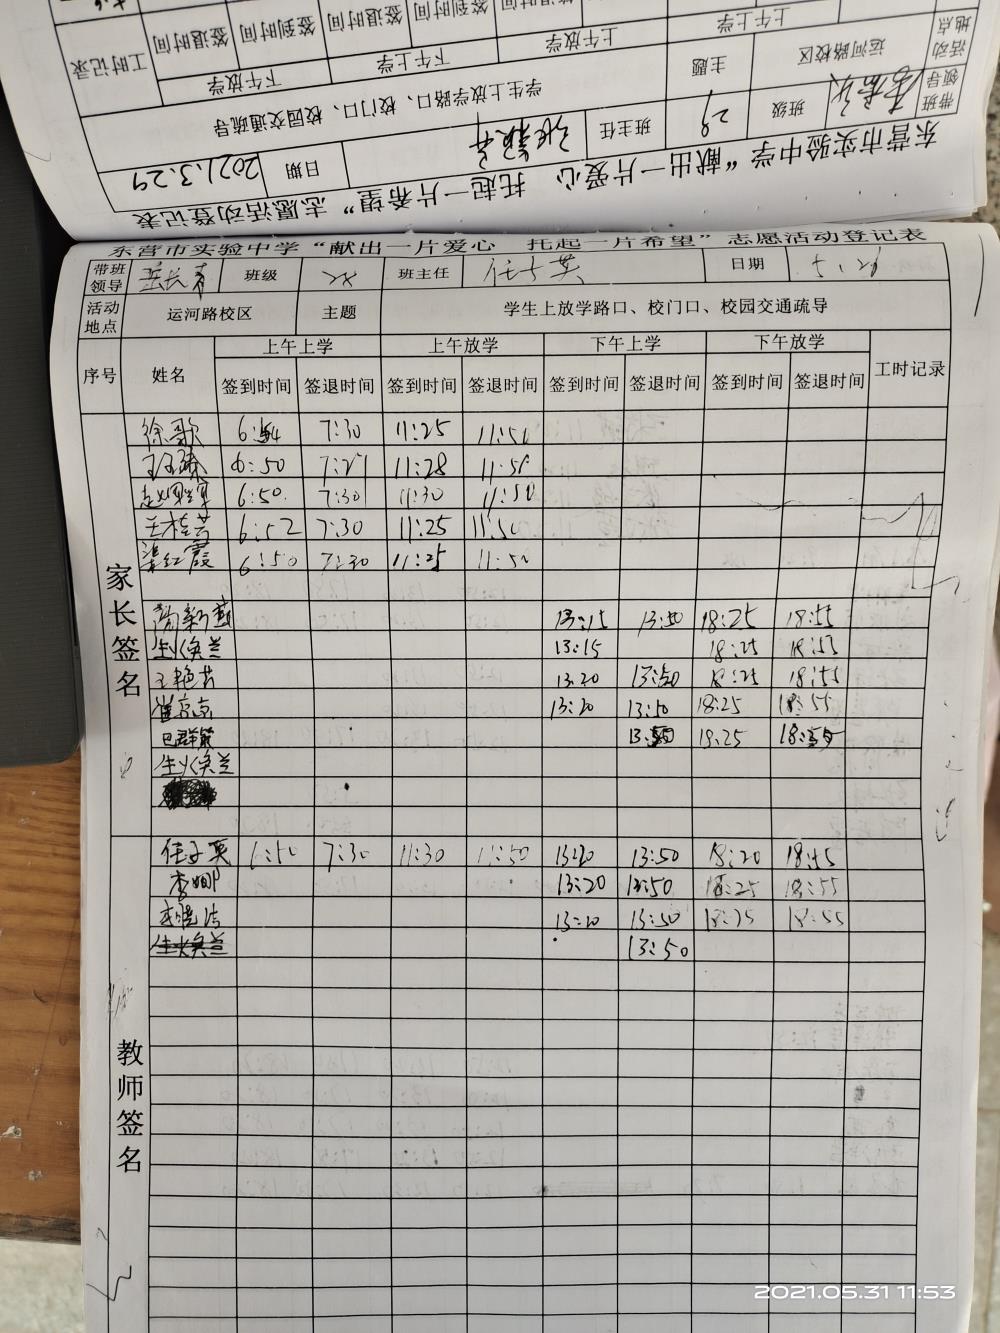 东营市实验中学“献出一片爱心 托起一片希望”志愿活动登记表
日期 2021.3.29
带班领导 班级 29 班主任
活动地点 运河路校区 主题 学生上放学路口、校门口、校园交通疏导
上午上学 上午放学 下午上学 下午放学 工时记录
签到时间 签退时间 签到时间 签退时间 签到时间 签退时间
东营市实验中学“献出一片爱心 托起一片希望”志愿活动登记表
带班领导 班级 班主任 任子英 日期
活动地点 运河路校区 主题 学生上放学路口、校门口、校园交通疏导
序号 姓名 上午上学 上午放学 下午上学 下午放学 工时记录
签到时间 签退时间 签到时间 签退时间 签到时间 签退时间 签到时间 签退时间
家长签名
徐歌 6:54 7:30 11:25 11:50
6:50 11:28 11:50
6:50. 7:30 11:30 11:50
王桂芸 6:52 7:30 11:25 11:50
梁红霞 6:50 7:30 11:25 11:50
13:15 13:50 18:25 18:55
生焕兰 13:15 18:25 18:55
王艳芳 13:20 13:50 18:25 18:55
崔京京 13:20 13:50 18:25 18:55
巴群策 13:50 18:25 18:55
生焕兰
教师签名
任子英 6:50 7:30 11:30 11:50 13:20 13:50 18:20 18:55
李娜 13:20 13:50 18:25 18:55
李晓洁 13:20 13:50 18:25 18:55
生焕兰 13:50
2021.05.31 11:53